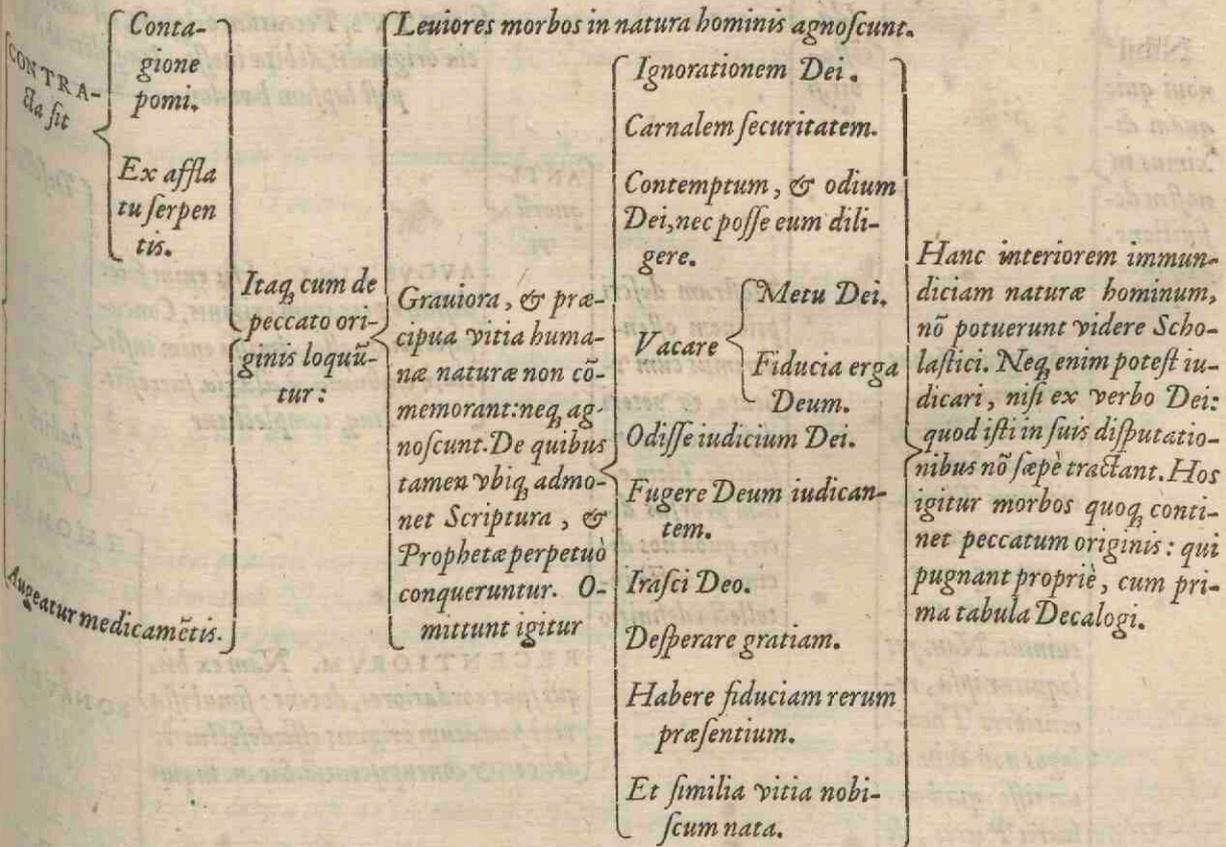 CONTRA-
cta sit
Conta-
gione
pomi.
Ex affla
tu serpen
tis.
Augeatur medicamētis.
Itaq; cum de
peccato ori-
ginis loquū-
tur:
Leuiores morbos in natura hominis agnoscunt.
Grauiora, & præ-
cipua vitia huma-
næ naturæ non cō-
memorant: neq; ag-
noscunt. De quibus
tamen vbiq; admo-
net Scriptura, &
Prophetæ perpetuò
conqueruntur. O-
mittunt igitur
Ignorationem Dei.
Carnalem securitatem.
Contemptum, & odium
Dei, nec posse eum dili-
gere.
Vacare
Metu Dei.
Fiducia erga
Deum.
Odisse iudicium Dei.
Fugere Deum iudican-
tem.
Irasci Deo.
Desperare gratiam.
Habere fiduciam rerum
præsentium.
Et similia vitia nobi-
scum nata.
Hanc interiorem immun-
diciam naturæ hominum,
nō potuerunt videre Scho-
lastici. Neq; enim potest iu-
dicari, nisi ex verbo Dei:
quod isti in suis disputatio-
nibus nō sæpè tractant. Hos
igitur morbos quoq; conti-
net peccatum originis: qui
pugnant propriè, cum pri-
ma tabula Decalogi.